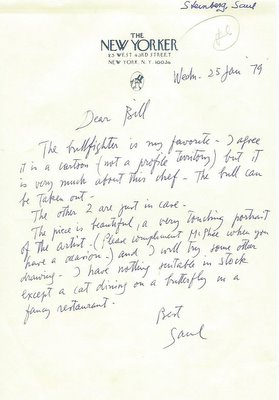 Steinberg, Saul
THE
NEW YORKER
25 WEST 43RD STREET
NEW YORK, N.Y. 10036
Wedn. 25 Jan '79
Dear Bill
The bullfighter is my favorite - I agree
it is a cartoon (not a profile territory) but it
is very much about this chef - The bull can
be taken out -
The other 2 are just in case -
The piece is beautiful, a very touching portrait
of the artist - (Please compliment McPhee when you
have a occasion -) and I will try some other
drawing - I have nothing suitable in stock
except a cat dining on a butterfly in a
fancy restaurant -
Best
Saul